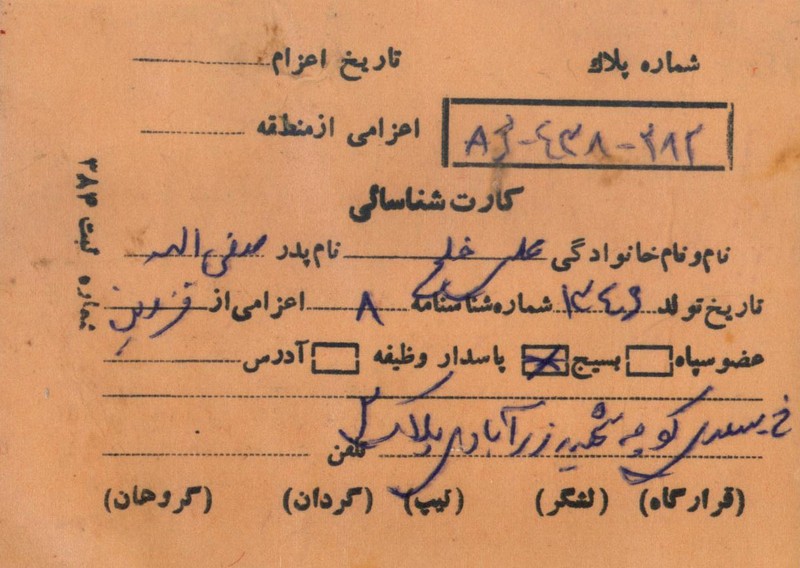 شماره پلاك تاریخ اعزام
اعزامی از منطقه
کارت شناسائی
نام و نام خانوادگی علی خلج نام پدر صفی اله
تاریخ تولد ۱۳۴۶ شماره شناسنامه ۸ اعزامی از قزوین
عضو سپاه بسیج پاسدار وظیفه آدرس
خ سعدی کوچه شهید زرآبادی پلاک
تلفن
(قرارگاه) (لشگر) (تیپ) (گردان) (گروهان)
شماره ثبت ۳۸۲